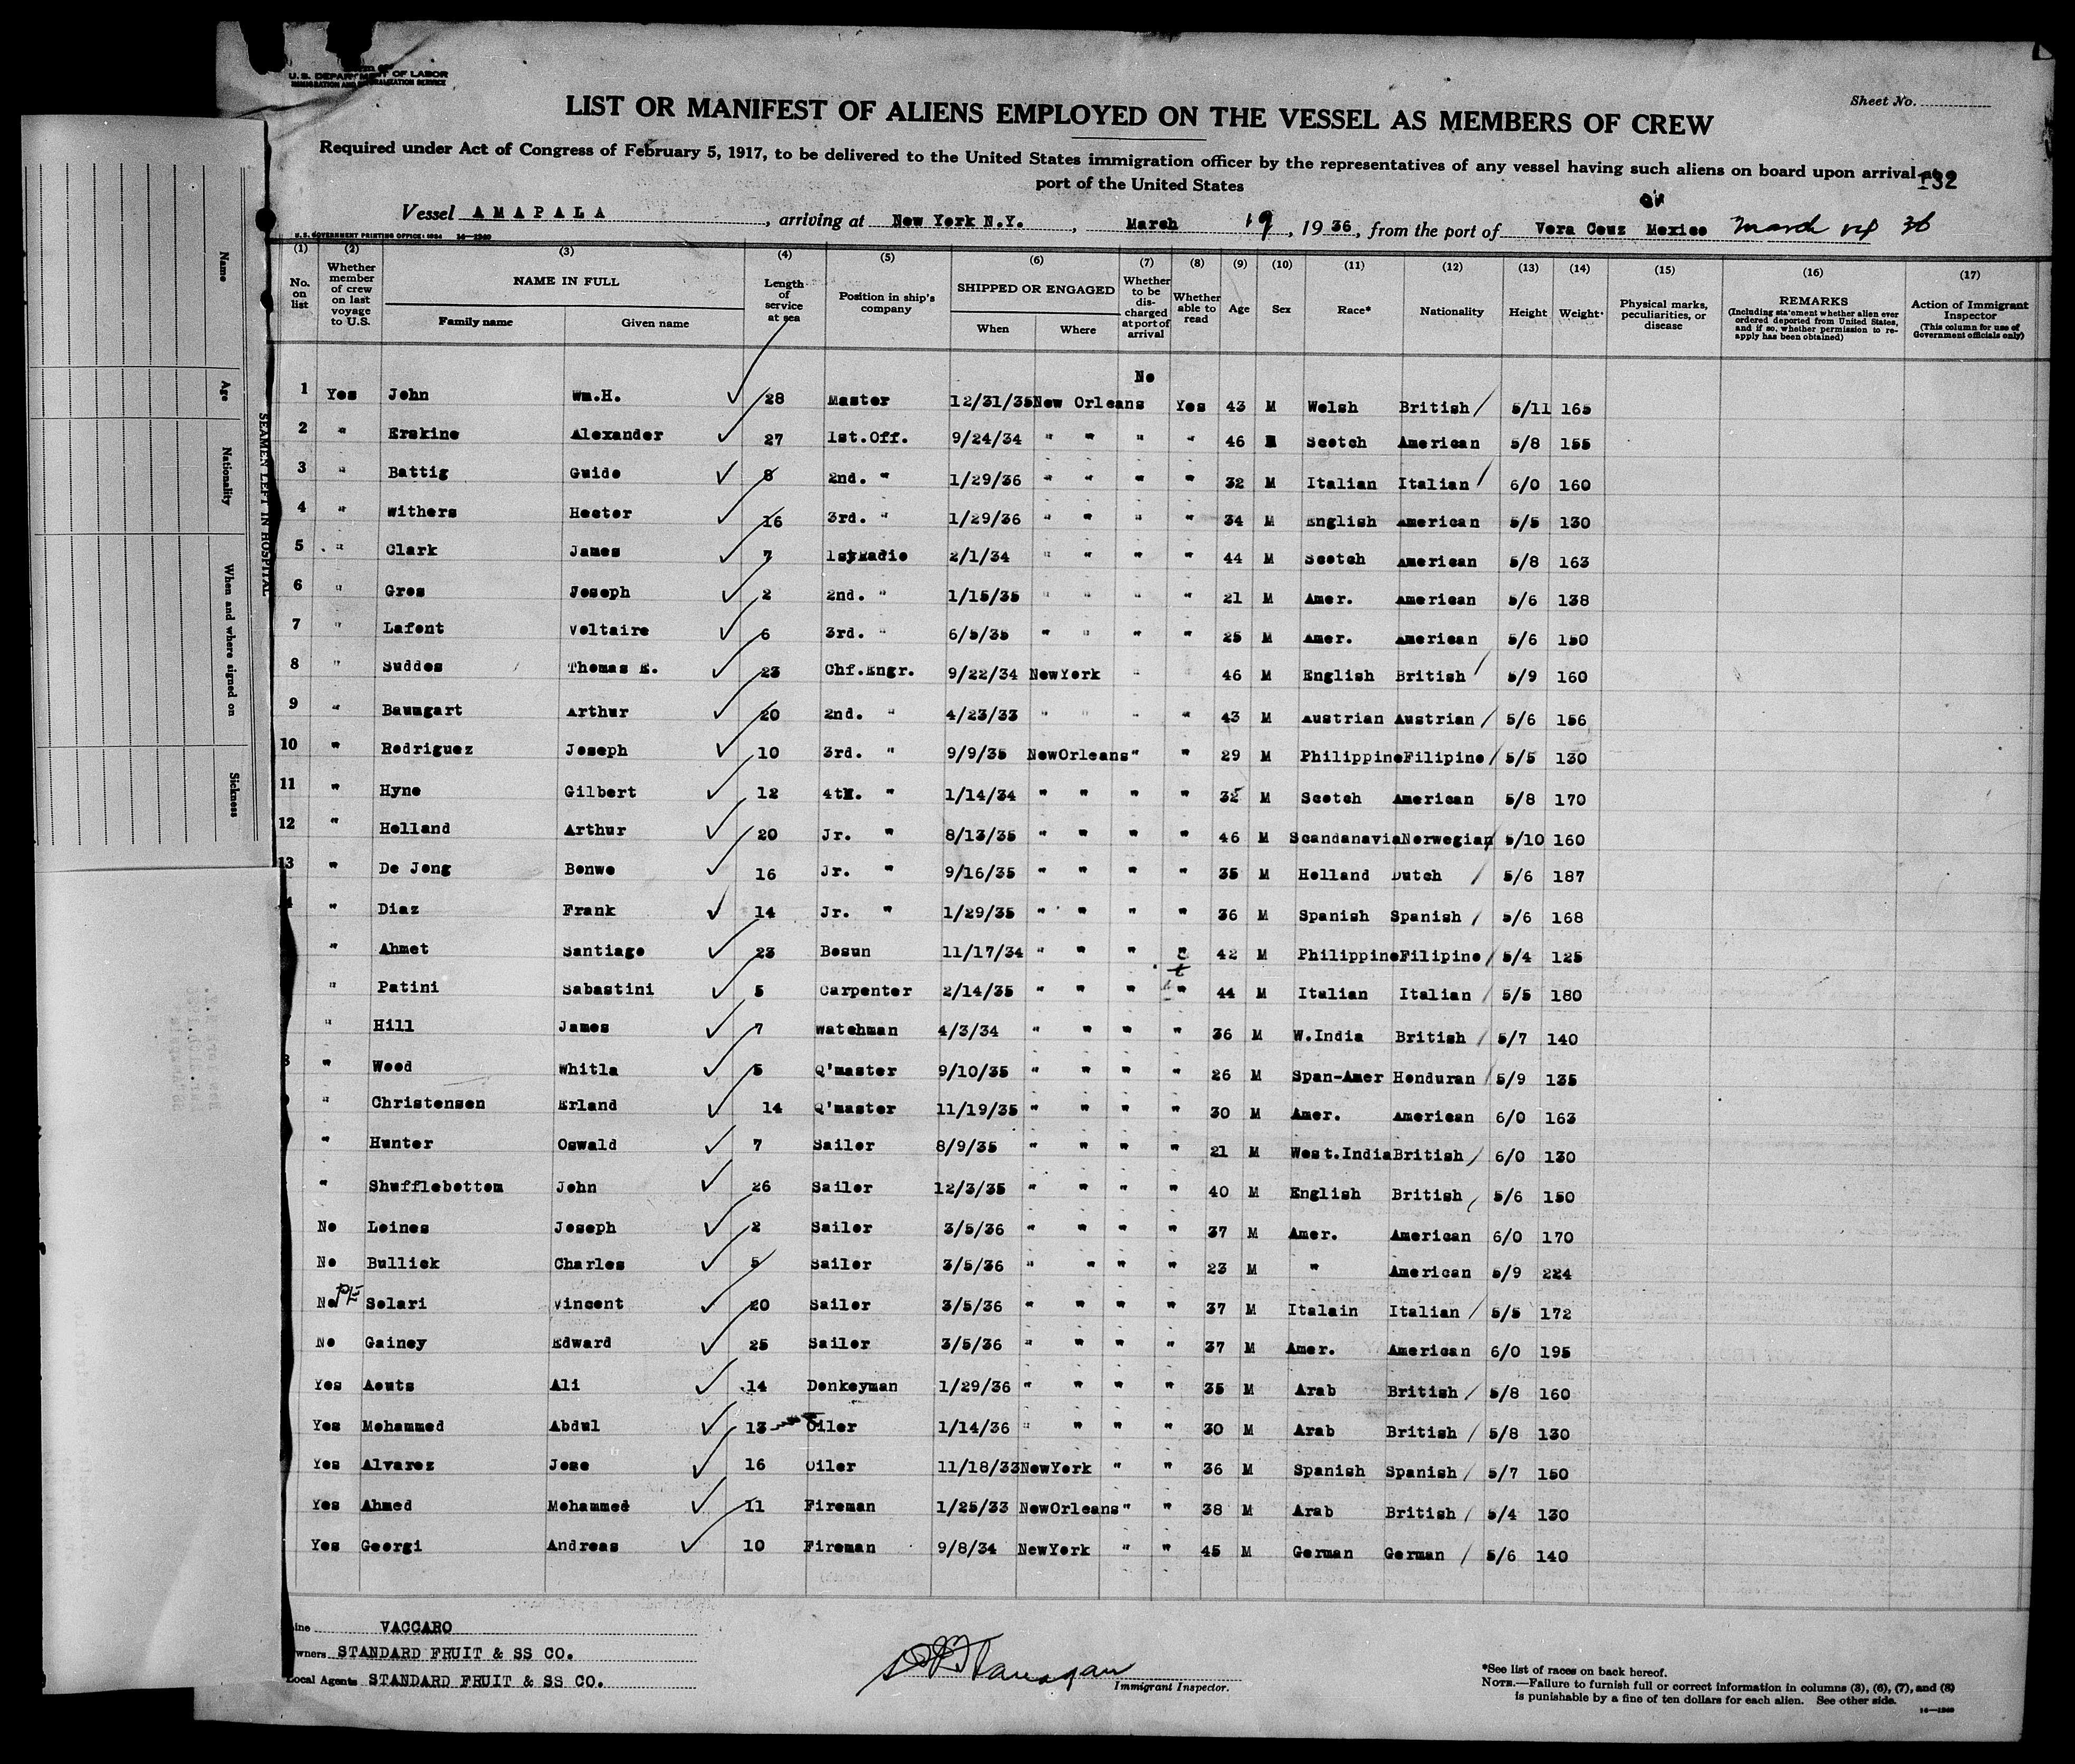 U.S. DEPARTMENT OF LABOR
IMMIGRATION AND NATURALIZATION SERVICE
Sheet No.
LIST OR MANIFEST OF ALIENS EMPLOYED ON THE VESSEL AS MEMBERS OF CREW
Required under Act of Congress of February 5, 1917, to be delivered to the United States immigration officer by the representatives of any vessel having such aliens on board upon arrival at a
port of the United States
132
Vessel AMAPALA, arriving at New York N.Y., March 19, 1936, from the port of Vera Couz Mexico March 36
U.S. GOVERNMENT PRINTING OFFICE: 1934 16—1240
(1) (2) (3) (4) (5) (6) (7) (8) (9) (10) (11) (12) (13) (14) (15) (16) (17)
No. on list
Whether member of crew on last voyage to U.S.
NAME IN FULL
Family name
Given name
Length of service at sea
Position in ship's company
SHIPPED OR ENGAGED
When
Where
Whether to be discharged at port of arrival
Whether able to read
Age
Sex
Race*
Nationality
Height
Weight
Physical marks, peculiarities, or disease
REMARKS
(Including statement whether alien ever ordered deported from United States, and if so, whether permission to reapply has been obtained)
Action of Immigrant Inspector
(This column for use of Government officials only)
No
1 Yes John Wm.H. 28 Master 12/31/35 New Orleans Yes 43 M Welsh British 5/11 165
2 " Erskine Alexander 27 1st.Off. 9/24/34 " " " " 46 M Scotch American 5/8 155
3 " Battig Guido 8 2nd. " 1/29/36 " " " " 32 M Italian Italian 6/0 160
4 " Withers Hector 16 3rd. " 1/29/36 " " " " 34 M English American 5/5 130
5 " Clark James 7 1st Radio 2/1/34 " " " " 44 M Scotch American 5/8 163
6 " Gros Joseph 2 2nd. " 1/15/35 " " " " 21 M Amer. American 5/6 138
7 " Lafont Voltaire 6 3rd. " 6/5/35 " " " " 25 M Amer. American 5/6 150
8 " Suddes Thomas E. 23 Chf.Engr. 9/22/34 NewYork " 46 M English British 5/9 160
9 " Baumgart Arthur 20 2nd. " 4/23/33 " " " " 43 M Austrian Austrian 5/6 156
10 " Rodriguez Joseph 10 3rd. " 9/9/35 NewOrleans " " 29 M Philippine Filipino 5/5 130
11 " Hyne Gilbert 12 4th. " 1/14/34 " " " " 32 M Scotch American 5/8 170
12 " Holland Arthur 20 Jr. " 8/13/35 " " " " 46 M Scandanavia Norwegian 5/10 160
13 " De Jong Benwe 16 Jr. " 9/16/35 " " " " 35 M Holland Dutch 5/6 187
4 " Diaz Frank 14 Jr. " 1/29/35 " " " " 36 M Spanish Spanish 5/6 168
" Ahmet Santiago 23 Bosun 11/17/34 " " " " 42 M Philippine Filipino 5/4 125
" Patini Sabastini 5 Carpenter 2/14/35 " " " " 44 M Italian Italian 5/5 180
" Hill James 7 Watchman 4/3/34 " " " " 36 M W.India British 5/7 140
8 " Wood Whitla 5 Q'master 9/10/35 " " " " 26 M Span-Amer Honduran 5/9 135
" Christensen Erland 14 Q'master 11/19/35 " " " " 30 M Amer. American 6/0 163
" Hunter Oswald 7 Sailor 8/9/35 " " " " 21 M West.India British 6/0 130
" Shufflebottom John 26 Sailor 12/3/35 " " " " 40 M English British 5/6 150
No Loines Joseph 2 Sailor 3/5/36 " " " " 37 M Amer. American 6/0 170
No Bullick Charles 5 Sailor 3/5/36 " " " " 23 M " American 5/9 224
No Solari Vincent 20 Sailor 3/5/36 " " " " 37 M Italain Italian 5/5 172
No Gainey Edward 25 Sailor 3/5/36 " " " " 37 M Amer. American 6/0 195
Yes Aouts Ali 14 Donkeyman 1/29/36 " " " " 35 M Arab British 5/8 160
Yes Mohammed Abdul 13 Oiler 1/14/36 " " " " 30 M Arab British 5/8 130
Yes Alvarez Jose 16 Oiler 11/18/33 NewYork " " 36 M Spanish Spanish 5/7 150
Yes Ahmed Mohammed 11 Fireman 1/25/33 NewOrleans " " 38 M Arab British 5/4 130
Yes Georgi Andreas 10 Fireman 9/8/34 NewYork " " 45 M German German 5/6 140
ine VACCARO
wners STANDARD FRUIT & SS CO.
Local Agents STANDARD FRUIT & SS CO.
Immigrant Inspector.
*See list of races on back hereof.
NOTE.—Failure to furnish full or correct information in columns (3), (6), (7), and (8)
is punishable by a fine of ten dollars for each alien. See other side.
16—1240
SEAMEN LEFT IN HOSPITAL
Name
Age
Nationality
When and where signed on
Sickness